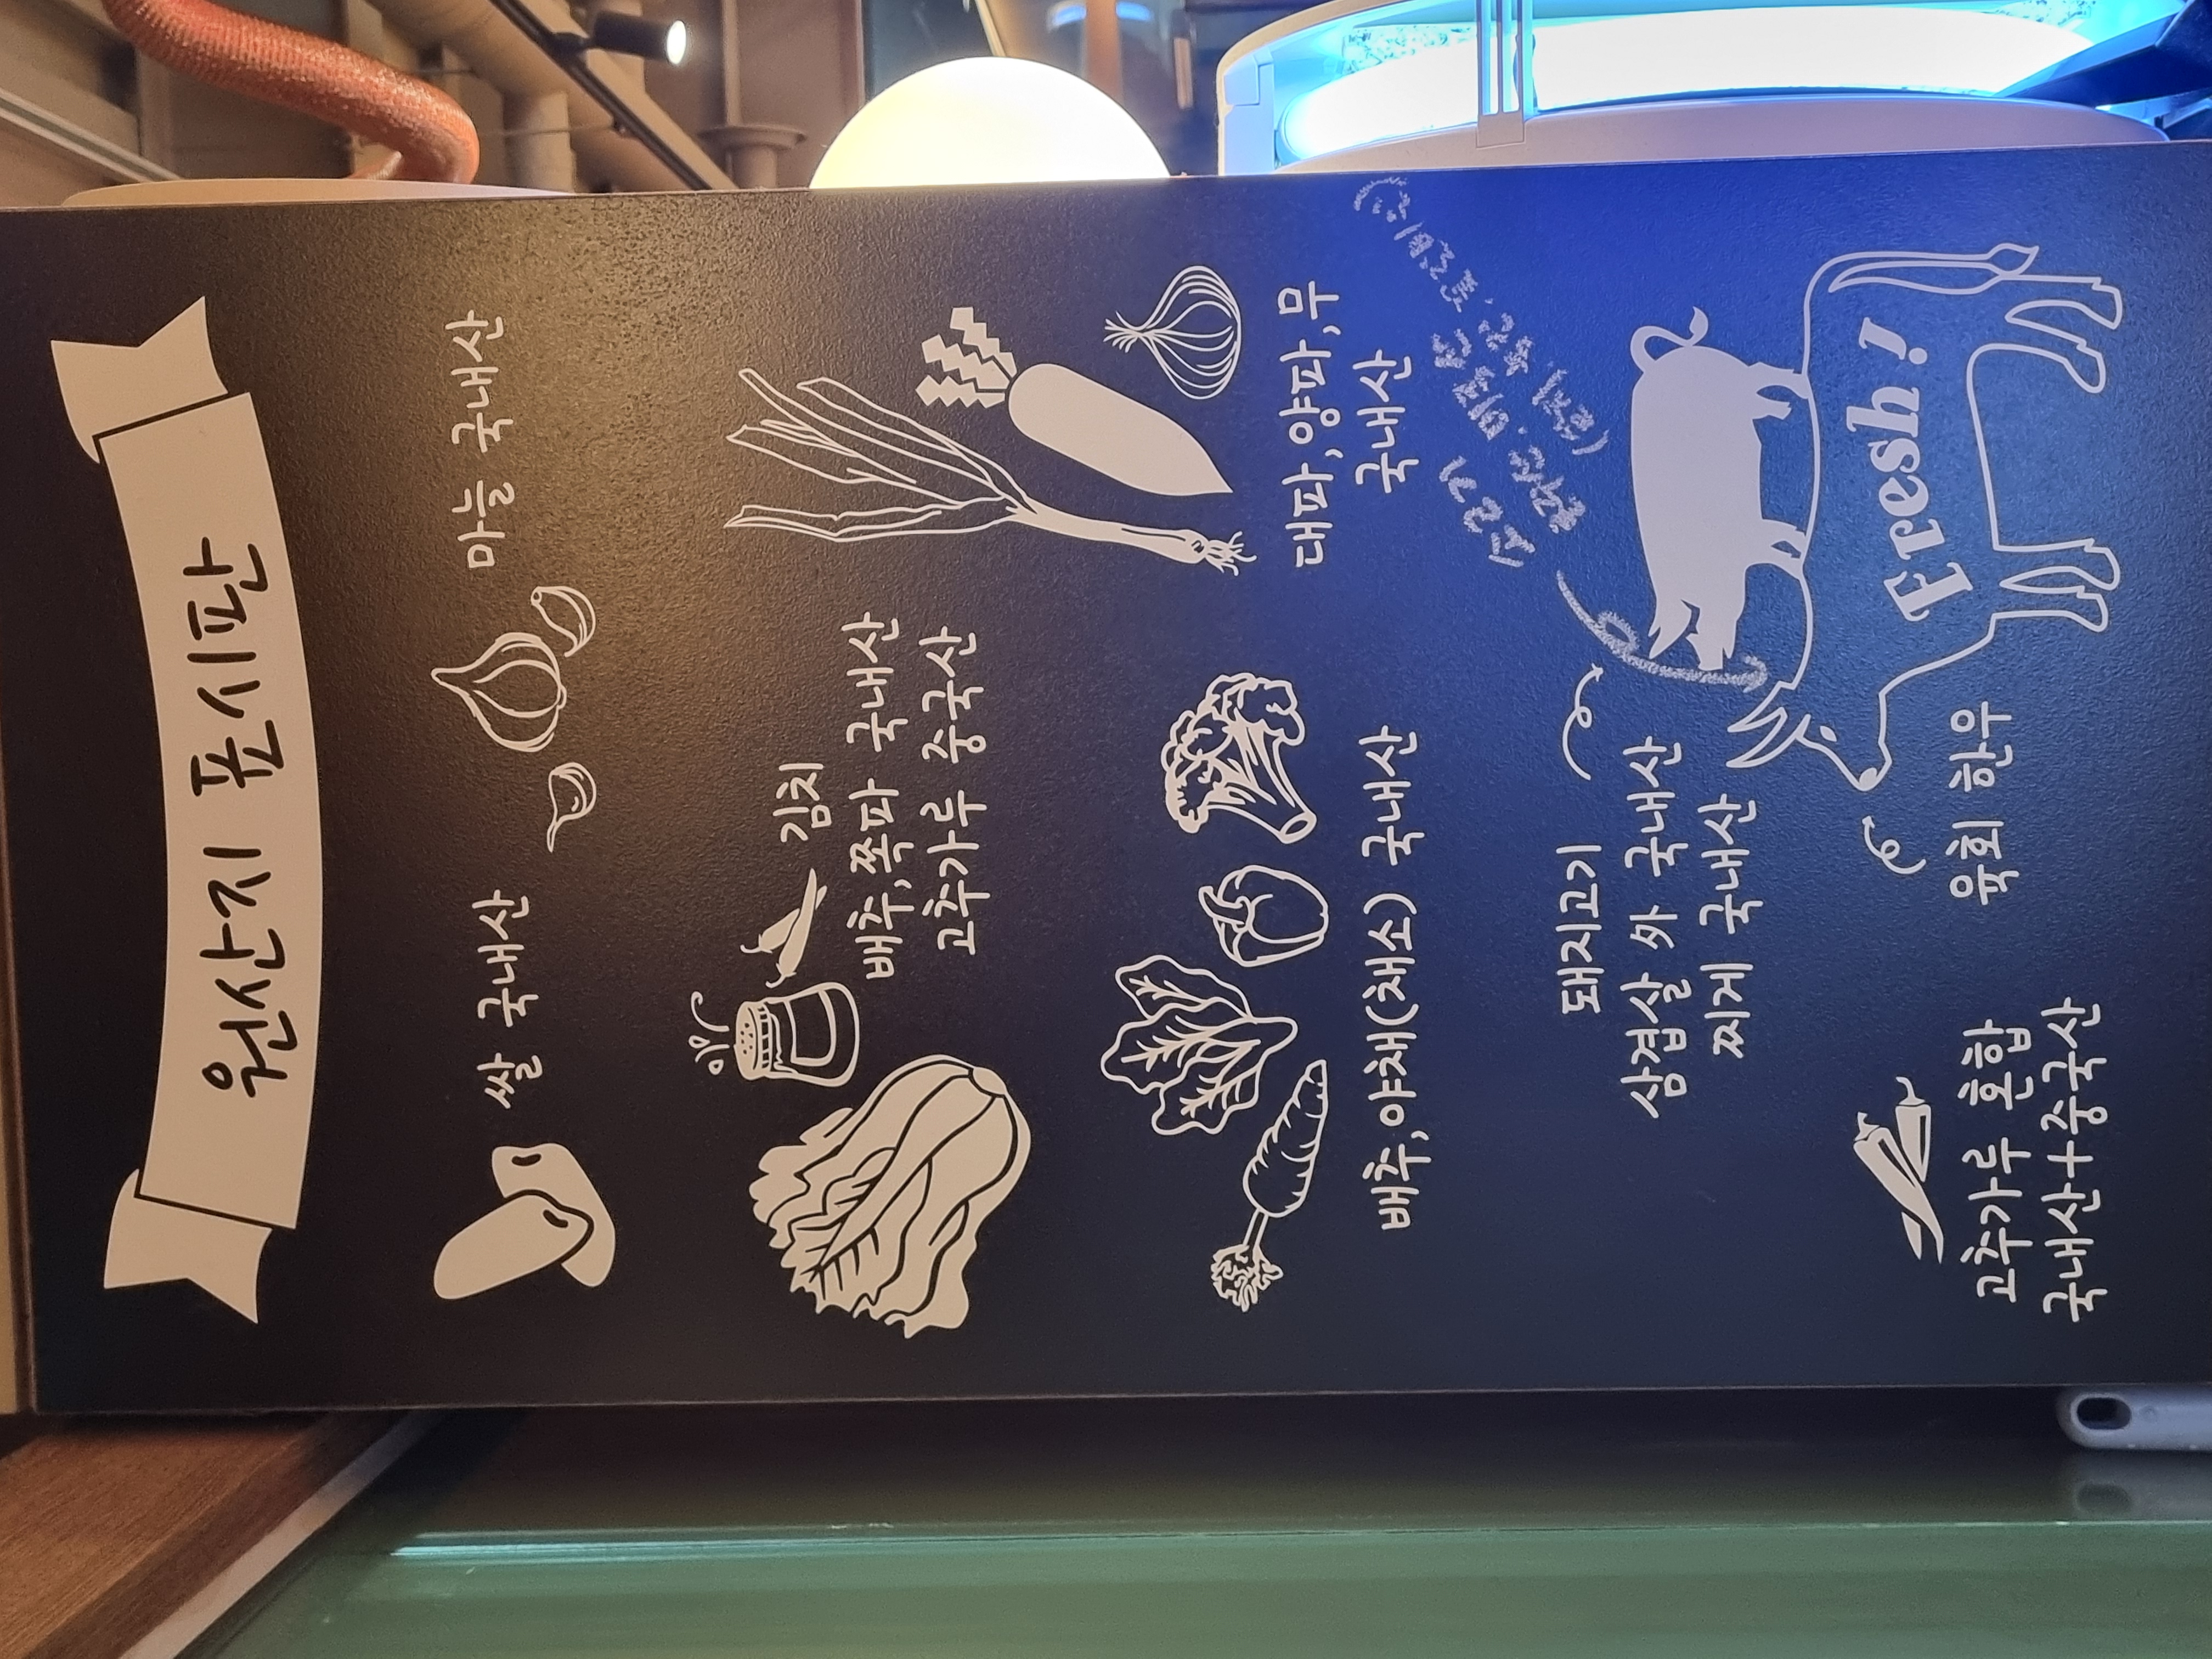 원산지 표시판
쌀 국내산
마늘 국내산
김치
배추,쪽파 국내산
고추가루 중국산
대파,양파,무
국내산
배추,야채(채소) 국내산
소고기
돼지고기
삼겹살 外 국내산
찌게 국내산
Fresh!
육회 한우
고추가루 혼합
국내산+중국산